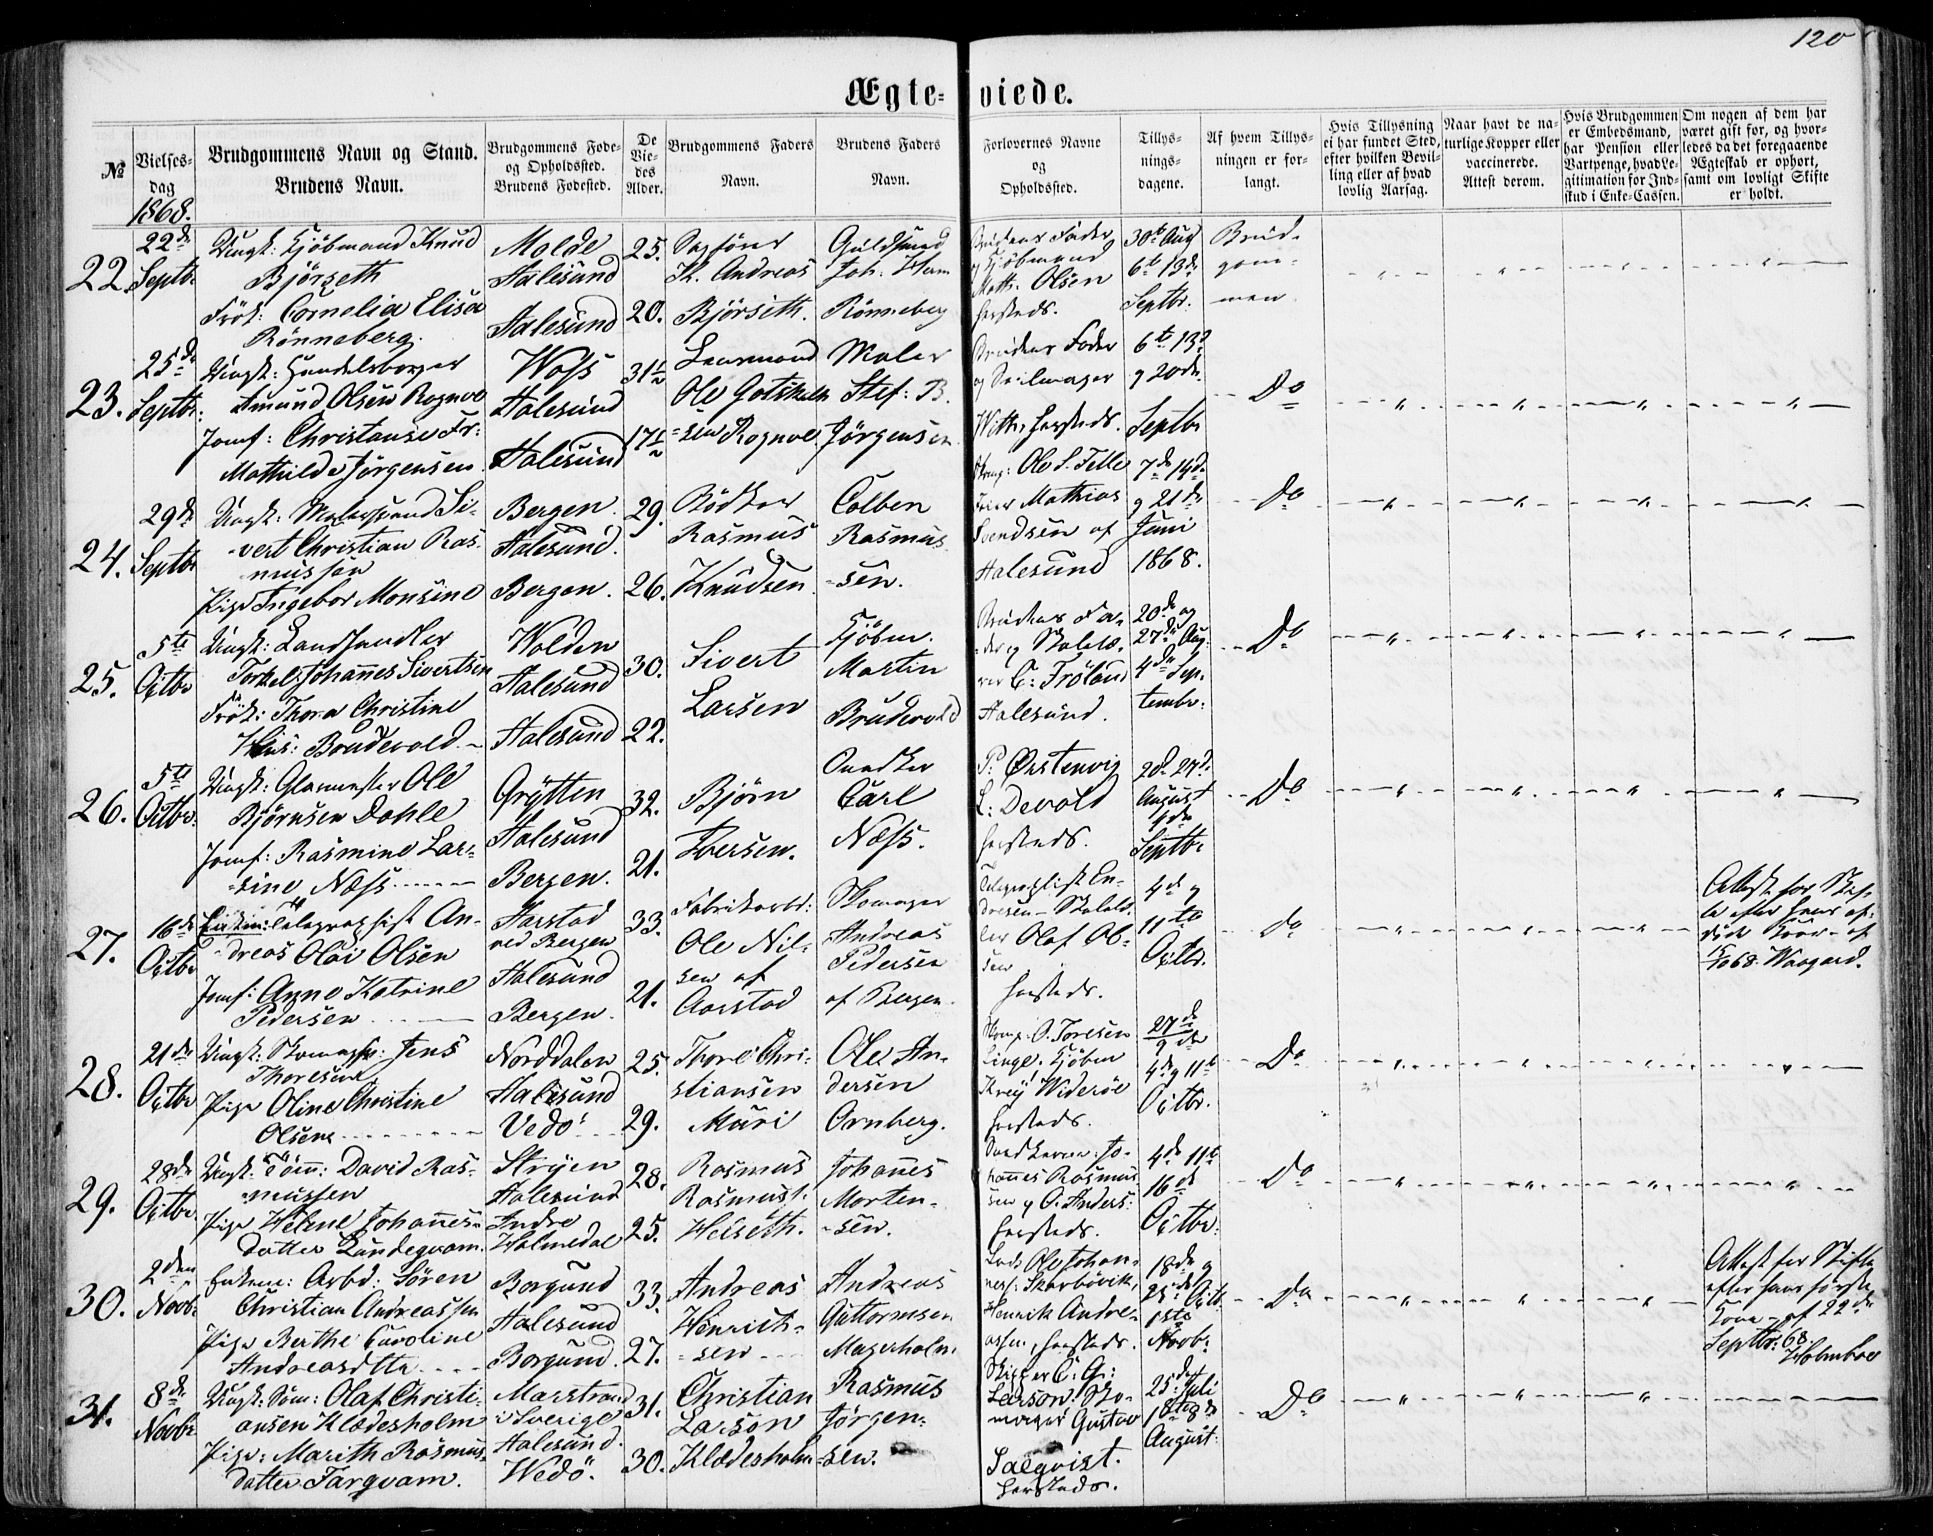 120
Ægte- viede.
№
Vielses-
dag
1868.
Brudgommens Navn og Stand.
Brudens Navn.
Brudgommens Føde-
og Opholdssted.
Brudens Fødested.
De
Vie-
des
Alder.
Brudgommens Faders
Navn.
Brudens Faders
Navn.
Forlovernes Navne
og
Opholdssted.
Tillys-
nings-
dagene.
Af hvem Tillys-
ningen er for-
langt.
Hvis Tillysning
ei har fundet Sted,
efter hvilken Bevil-
ling eller af hvad
lovlig Aarsag.
Naar havt de na-
turlige Kopper eller
vaccinerede.
Attest derom.
Hvis Brudgommen
er Embedsmand,
har Pension eller
Vartpenge, hvad Le-
gitimation for Ind-
skud i Enke-Cassen.
Om nogen af dem har
været gift før, og hvor-
ledes da det foregaaende
Ægteskab er ophørt,
samt om lovligt Skifte
er holdt.
22.
22de
Septbr.
Ungk: Kjøbmand Knud
Bjørseth
Frøk: Cornelia Elisa
Rønneberg.
Molde
Aalesund
Aalesund
25.
20.
Sagfører
K. Andreas
Bjørseth.
Guldsmed
Joh. Ham
Rønneberg
Brudens Fader
og Kjøbmand
Math. Olsen
hersteds.
30te Aug
6te 13de
Septbr.
Brud-
gom-
men.
23.
25de
Septbr:
Ungk: Handelsborger
Amund Olsen Rogne
Jomf: Christanse Fr:
Mathilde Jørgensen.
Woss
Aalesund
Aalesund
31½
17½
Leensmand
Ole Gotskalk
-sen Rogne.
Maler
Stef: B.
Jørgensen.
Brudens Fader
og Seilmager
With, hersteds.
6te 13de
og 20de
Septbr
Do
24.
29de
Septbr
Ungk: Malersvend Si-
-vert Christian Ras-
mussen
Pige Ingebor Monsine
Bergen.
Aalesund.
Bergen.
29.
26.
Bødker
Rasmus
Knudsen.
Colben
Rasmus
-sen.
Ole S. Felle
Mathias
Svendsen af
Aalesund
7de 14de
og 21de
Juni
1868.
Do
25.
5te
Octbr
Ungk: Landhandler
Torkel Johannes Sivertsen
Frøk: Thora Christine
Hus: Brudevold
Volden
Aalesund
Aalesund
30.
22.
Sivert
Larsen
Kjøbm.
Martin
Brudevold
Brudens Fa-
der og Skolelæ-
rer C: Frøland
Aalesund.
20de og
27de Aug:
4de Sep-
tembr:
Do
26.
5te
Octbr.
Ungk: Glarmester Ole
Bjørnsen Dahle
Jomf: Rasmine Lar-
-sine Næss
Grytten
Aalesund
Bergen.
32.
21.
Bjørn
Ibersen.
Carl
Næss.
P. Ørstenvig
L: Devold
hersteds.
20de 27de
August
Septbr
Do
27.
16de
Octbr
Enkem: Telegraphist An-
-dreas Olai Olsen
Jomf: Anne Katrine
Pedersen
Aarstad
ved Bergen
Aalesund
Bergen.
33.
21.
Fabrikarbd:
Ole Nil-
sen af
Aarstad
Skomager
Andreas
Pedersen
af Bergen.
Telegraphist En-
dresen - Skolelæ-
rer Olaf Ol-
sen
hersteds.
4de og
11te
Octbr.
Do
Attest for Skif-
te efter hans af-
døde Kone - af
68. Waagaard.
28.
21de
Octbr
Ungk: Skomager: Jens
Thoresen
Pige Oline Christine
Olsen
Norddalen
Aalesund
Vedø
25.
29.
Thore Chri-
stiansen
Muri
Ole An-
dersen
Ornberg.
Skomg: O. Toresen
Linge. Kjøbm
Widerøe
hersteds.
27de
4de og 11te
Octbr.
Do
29.
28de
Octbr
Ungk: Tømm: David Ras-
mussen
Pige Helene Johannes-
datter Landegvam.
Stryen
Aalesund
Indre
Holmedal
28.
25.
Rasmus
Rasmus
Heiseth.
Johannes
Morten-
-sen.
Jo-
hannes Rasmus-
sen og O. Anders:
hersteds.
4de 11te
16de
Octbr:
Do
30.
2den
Novb:
Enkem: Arbd: Søren
Christian Andreassen
Pige Berthe Caroline
Andreasdtr
Borgund
Aalesund
Borgund.
33.
27.
Andreas
Henrik-
-sen
Andreas
Guttormsen
Magerholm
Ole Johan-
nes: Skarbøvik,
Henrik Andre-
assen, hersteds.
18de og
25de Octb
1ste
Novb:
Do
Attest for Skifte
efter hans første
Kone - af 22de
Septbr: 68.
Holmboe
31.
8de
Novbr
Ungk: Søm: Olaf Christi-
ansen Klædesholm
Pige: Marith Rasmus-
datter Fargvam.
Marstrand
i Sverige
Aalesund.
Wedø.
31.
30.
Christian
Larson
Klædesholm
Rasmus
Jørgen-
-sen.
Skipper C: G:
Larson: Sko-
mager Gustav
Salqvist.
hersteds.
25de Juli
1ste 8de
August.
Do